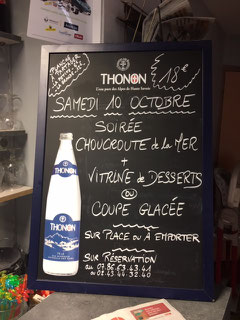 THONON
L'eau pure des Alpes de Haute Savoie
18€
SAMEDI 10 OCTOBRE
SOIRÉE
CHOUCROUTE de la MER
+
VITRINE de DESSERTS
OU
COUPE GLACÉE
SUR PLACE OU À EMPORTER
SUR RÉSERVATION
au 07.86.53.43.41
ou 02.43.44.32.40
THONON